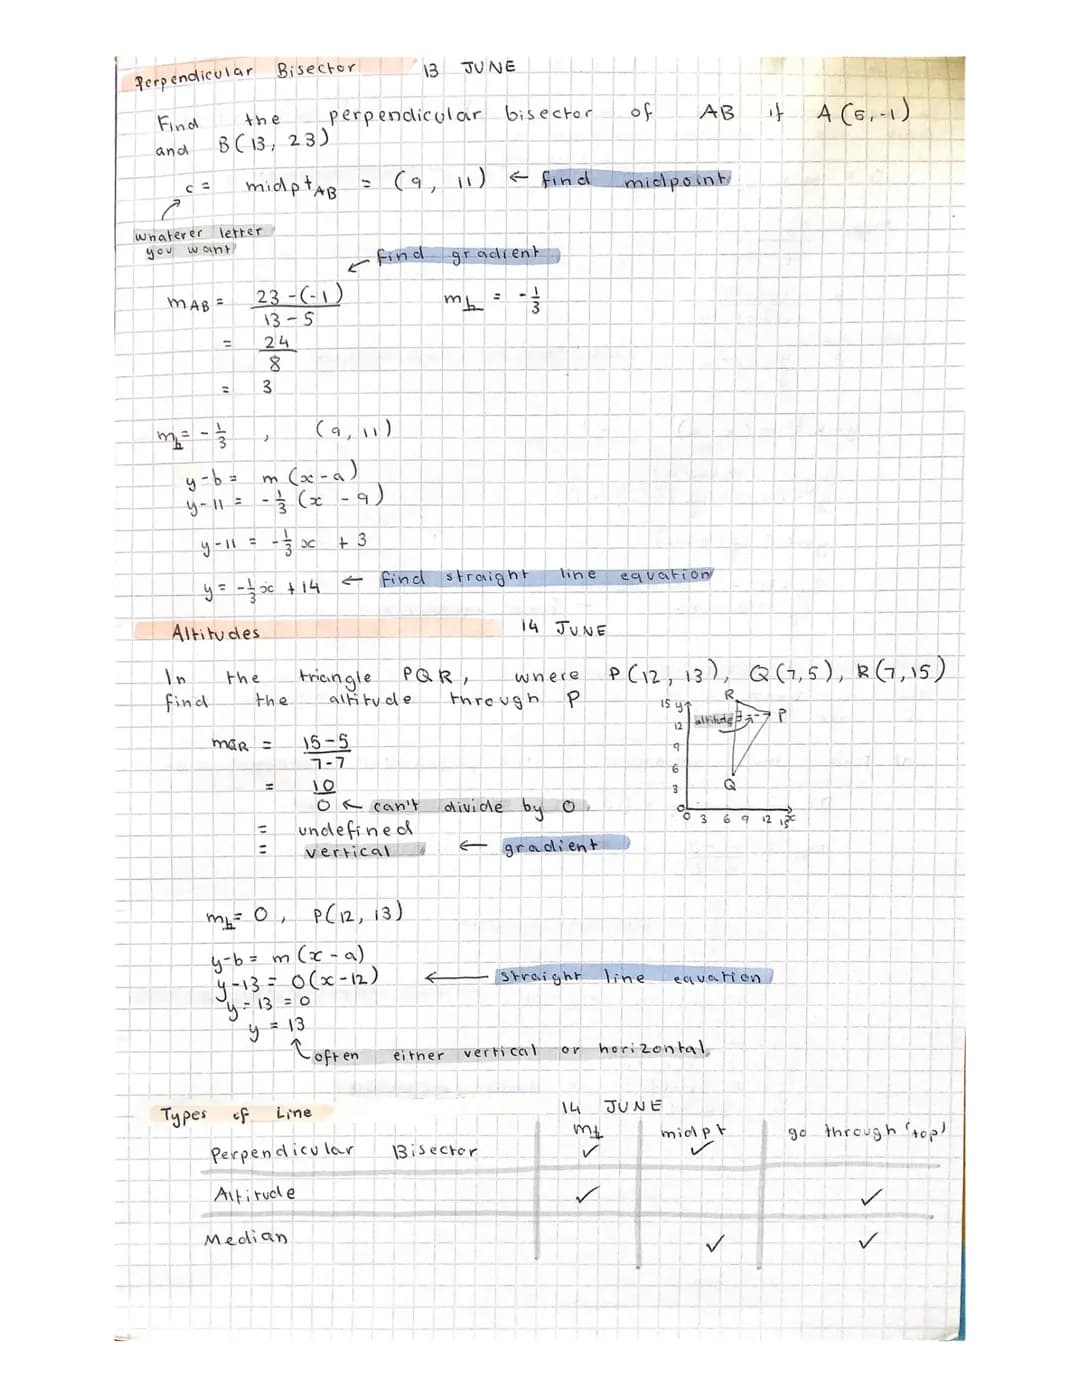 Perpendicular Bisector 13 JUNE
Find the perpendicular bisector of AB if A(5,-1)
and B(13, 23)
c = midpt AB = (9, 11) ← find midpoint
whatever letter
you want
← find gradient
mAB = 23-(-1) / 13-5 m⊥ = -1/3
= 24/8
= 3
m⊥ = -1/3 , (9, 11)
y-b = m(x-a)
y-11 = -1/3 (x - 9)
y-11 = -1/3 x + 3
y = -1/3 x + 14 ← find straight line equation
Altitudes 14 JUNE
In the triangle PQR, where P(12, 13), Q(7,5), R(7,15)
find the altitude through P
R
15 y
12 altitude P
9
6
3 Q
0
0 3 6 9 12 15 x
mQR = 15-5 / 7-7
= 10
0 ← can't divide by 0
= undefined
= vertical ← gradient
m⊥ = 0, P(12, 13)
y-b = m(x-a)
y-13 = 0(x-12) ← straight line equation
y-13 = 0
y = 13
↑ often either vertical or horizontal
Types of Line 14 JUNE
m⊥ midpt go through 'top'
Perpendicular Bisector ✓ ✓
Altitude ✓ ✓
Median ✓ ✓